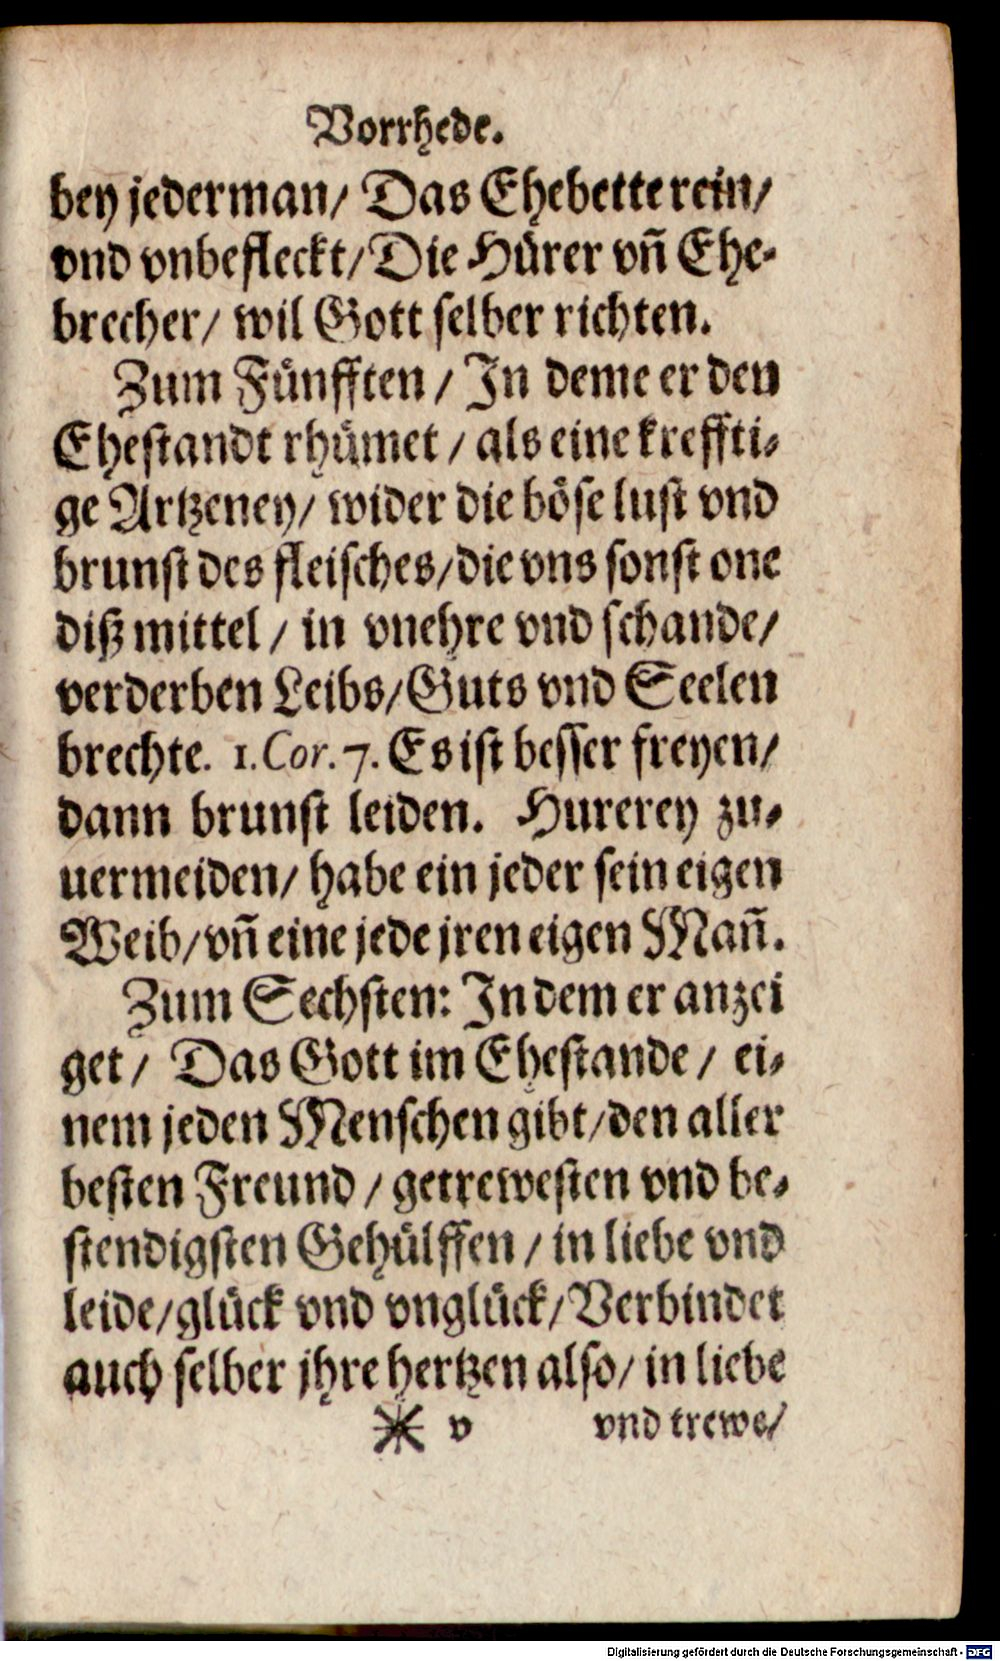 Vorrhede.
bey jederman/ Das Ehebette rein/
vnd vnbefleckt/ Die Hürer vñ Ehe-
brecher/ wil Gott selber richten.
Zum Fünfften / In deme er den
Ehestandt rhümet / als eine kreffti-
ge Artzeney/ wider die böse lust vnd
brunst des fleisches/ die vns sonst one
diß mittel / in vnehre vnd schande/
verderben Leibs/ Guts vnd Seelen
brechte. 1. Cor. 7. Es ist besser freyen/
dann brunst leiden. Hurerey zu-
uermeiden/ habe ein jeder sein eigen
Weib/ vñ eine jede jren eigen Mañ.
Zum Sechsten: In dem er anzei
get/ Das Gott im Ehestande/ ei-
nem jeden Menschen gibt/ den aller
besten Freund / getrewesten vnd be-
stendigsten Gehülffen / in liebe vnd
leide/ glück vnd vnglück/ Verbindet
auch selber jhre hertzen also/ in liebe
* v vnd trewe/
Digitalisierung gefördert durch die Deutsche Forschungsgemeinschaft - DFG